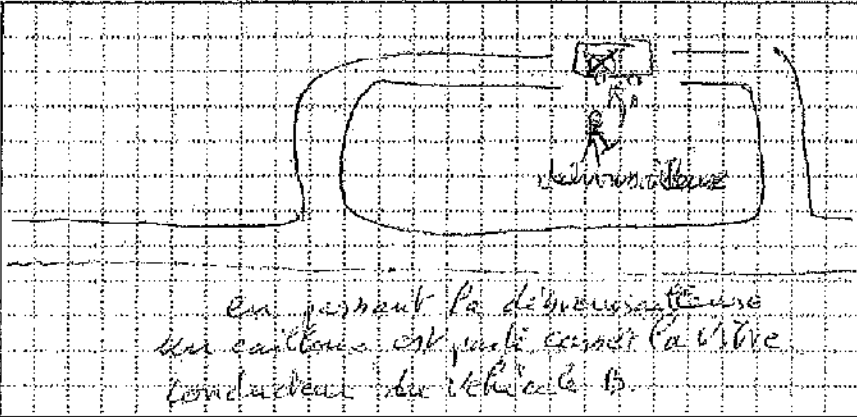 débroussailleuse
en passant la débroussailleuse
un caillou est parti casser la vitre
conducteur du véhicule B.